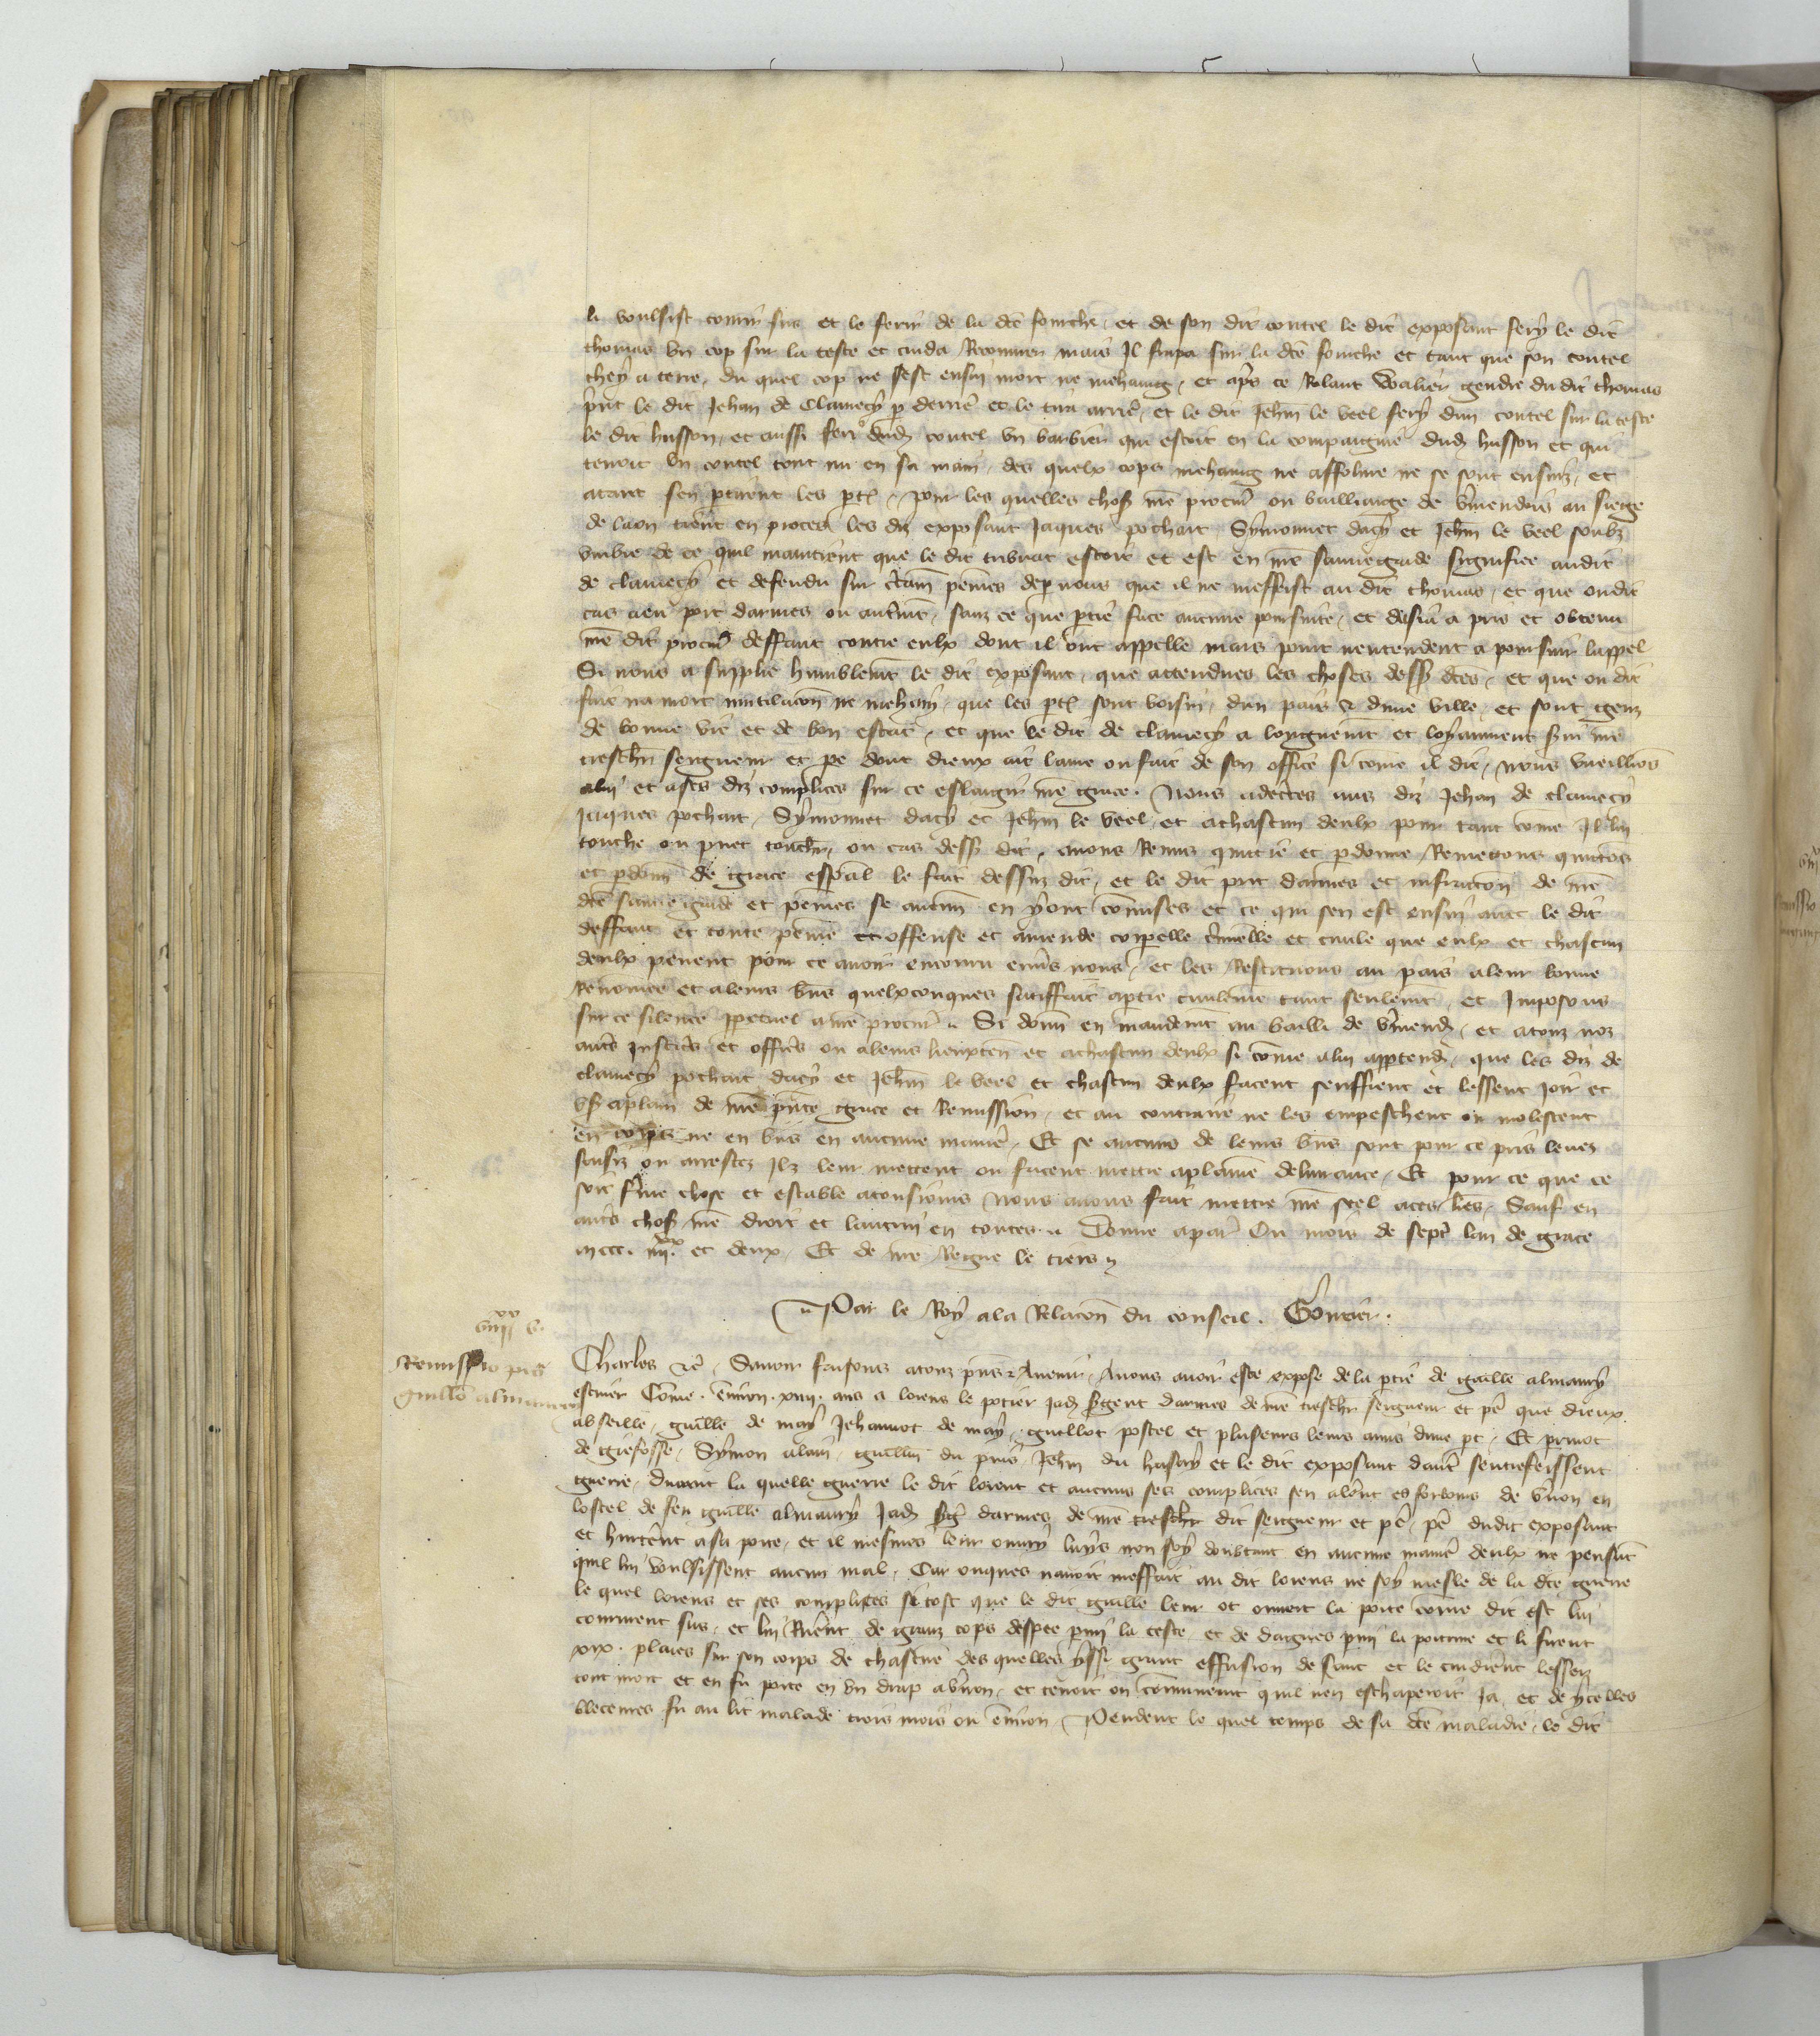 li voulsist courir sus et le ferir de la dce fourche, et de son dit coutel le dit exposant fery le dit
thomas un cop sur la teste et cuida Recouurer mais Il frapa sur la dce fourche et tant que son coutel
chey a terre, du quel cop ne sest ensuy mort ne mehaing, et apres ce Rolant Walier gendre du dit thomas
prit le dit Jehan de Clamecy p derriere et le tira arrie, et le dit Jehn le veel fery dun coutel sur la teste
le dit husson, et aussi feri dud coutel un barbier qui estoit en la compaignie dud husson et qui
tenoit un coutel tout nu en sa main, des quelx cops mehaing ne affolure ne se sont ensuiz, et
atant sen ptirent les pties, pour les quelles choses nre procur ou bailliaige de Vmendois au siege
de laon tient en proces les diz exposant Jaques pochart Symonnet dacy et Jehn le veel soubz
umbre de ce quil maintient que le dit tribuat estoit et est en nre sauuegarde signifiee audit
de clamecy et defendu sur ctain peines de p nous que il ne meffeist au dit thomas, et que ondit
cas a eu port darmes ou autmt, sanz ce que ptie face aucune poursuite, et desia a pris et obtenu
nre dit procur deffaut contre eulx dont il ont appelle mais point nentendent a poursuir lappel
Si nous a supplie humblemt le dit exposant, que attendues les choses dess dces, et que ou dit
fait na mort mutilacon ne mehaing, que les pties sont voisins, dun pais et dune ville, et sont genz
de bonne vie et de bon estat, et que le dit de clamecy a longuemt et loyaument serui nre
treschr seigneur et pe dont dieux ait lame ou fait de son office si come il dit, nous vueillions
a lui et a ses diz complices sur ce eslargir nre grace. Nous adecertes aus diz Jehan de clamecy
Jaques pochart, Symonnet dacy et Jehn le veel, et a chascun deulx pour tant come Il lui
touche ou puet touchr, ou cas dess dit, auons Remis quictie et pdonne Remettons quictons
et pdonn de grace espal le fait dessuz dit, et le dit port darmes et infraction de nre
dce sauuegarde et peines se aucun en y ont comises et ce qui sen est ensuy auec le dit
deffaut et toute peine et offense et amende corporelle cminelle et ciuile que eulx et chascun
deulx peuent pour ce auoir encouru enuers nous, et les Restituons au pais a leur bonne
Renomee et a leurs biens quelxconques satisfait a ptie ciuilemt tant seulemt, et Imposons
sur ce silence ppetuel a nre procur. Si donn en mandemt au bailli de Vmend, et a touz noz
autres Justiciers et officiers ou a leurs lieuxten et a chascun deulx si come a lui apptend, que les diz de
clamecy pochart dacy et Jehn le veel et chascun deulx facent seuffrent et lessent Joir et
user a plain de nre pnte grace et Remission, et au contraire ne les empeschent ou molestent
en corps ne en biens en aucune maniere, Et se aucuns de leurs biens sont pour ce pris leuez
saisiz ou arrestez Ilz leur mettent ou facent mettre a plaine deliurance, Et pour ce que ce
soit ferme chose et estable a tousiours Nous auons fait mettre nre scel a ces lres, Sauf en
autres choses nre droit et lautrui en toutes. Donne a paris Ou mois de sept lan de grace
mccc. iiii xx et deux, Et de nre Regne le tiers
Par le Roy a la Relacon du conseil. Gontier.
Remissio pro
guillo almaurry
Charles etc. Sauoir faisons a touz pns et Auenir, Nous auoir este expose de la ptie de guille almaury
escuier Come. enuiron. xiiii. ans a lorens le potier Jad sgent darmes de nre treschr seigneur et pe que dieux
absoille, guille de may Jehannot de may, guillot postel et pluseurs leurs amis dune pt, Et prinot
de grefosse, Symon alain, guillin du puis Jehn du hasay et le dit exposant dautre sentrefeissent
guerre, durant la quelle guerre le dit lorent et aucuns ses complices sen alerent es forbours de Vnon en
lostel de feu guille almaury Jad sgt darmes de nre treschr dit seigneur et pe, pe dudit exposant
et hurterent a sa porte, et il mesmes leur ouury luys non soy doubtant en aucune maniere deulx ne pensant
quil lui voulsissent aucun mal, Car onques nauoit meffait au dit lorens ne soy mesle de la dce guerre
le quel lorens et ses complices si tost que le dit guille leur ot ouuert la porte come dit est lui
coururent sus, et lui Ruerent de granz cops despee pmi la teste, et de dagues pmi la poitrine et li firent
xix. plaies sur son corps de chascune des quelles yssi grant effusion de sanc et le cuidierent lessier
tout mort et en fu porte en un drap a Vnon, et tenoit on communemt quil nen eschaperoit Ja, et de ycelles
bleceures fu au lit malade trois mois ou enuiron, Pendent le quel temps de sa dce maladie, le dit